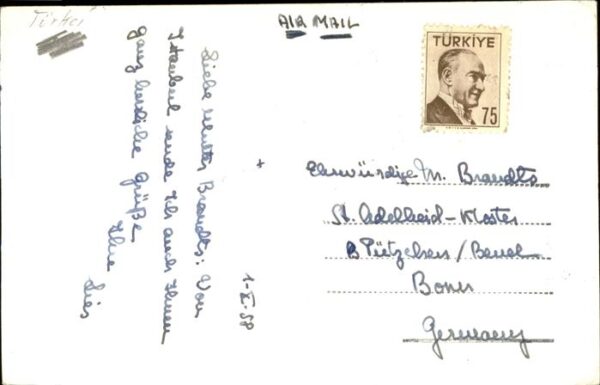 Türkei
AIR MAIL
TÜRKİYE
75
1-X-58
Liebe Mutter Brandts: Von
Istanbul sende Ich auch Ihnen
ganz herzliche Grüße
Ihre
Lies
Ehrwürdige M. Brandts
St. Adelheid-Kloster
B Pützchen/Beuel
Bonn
Germany